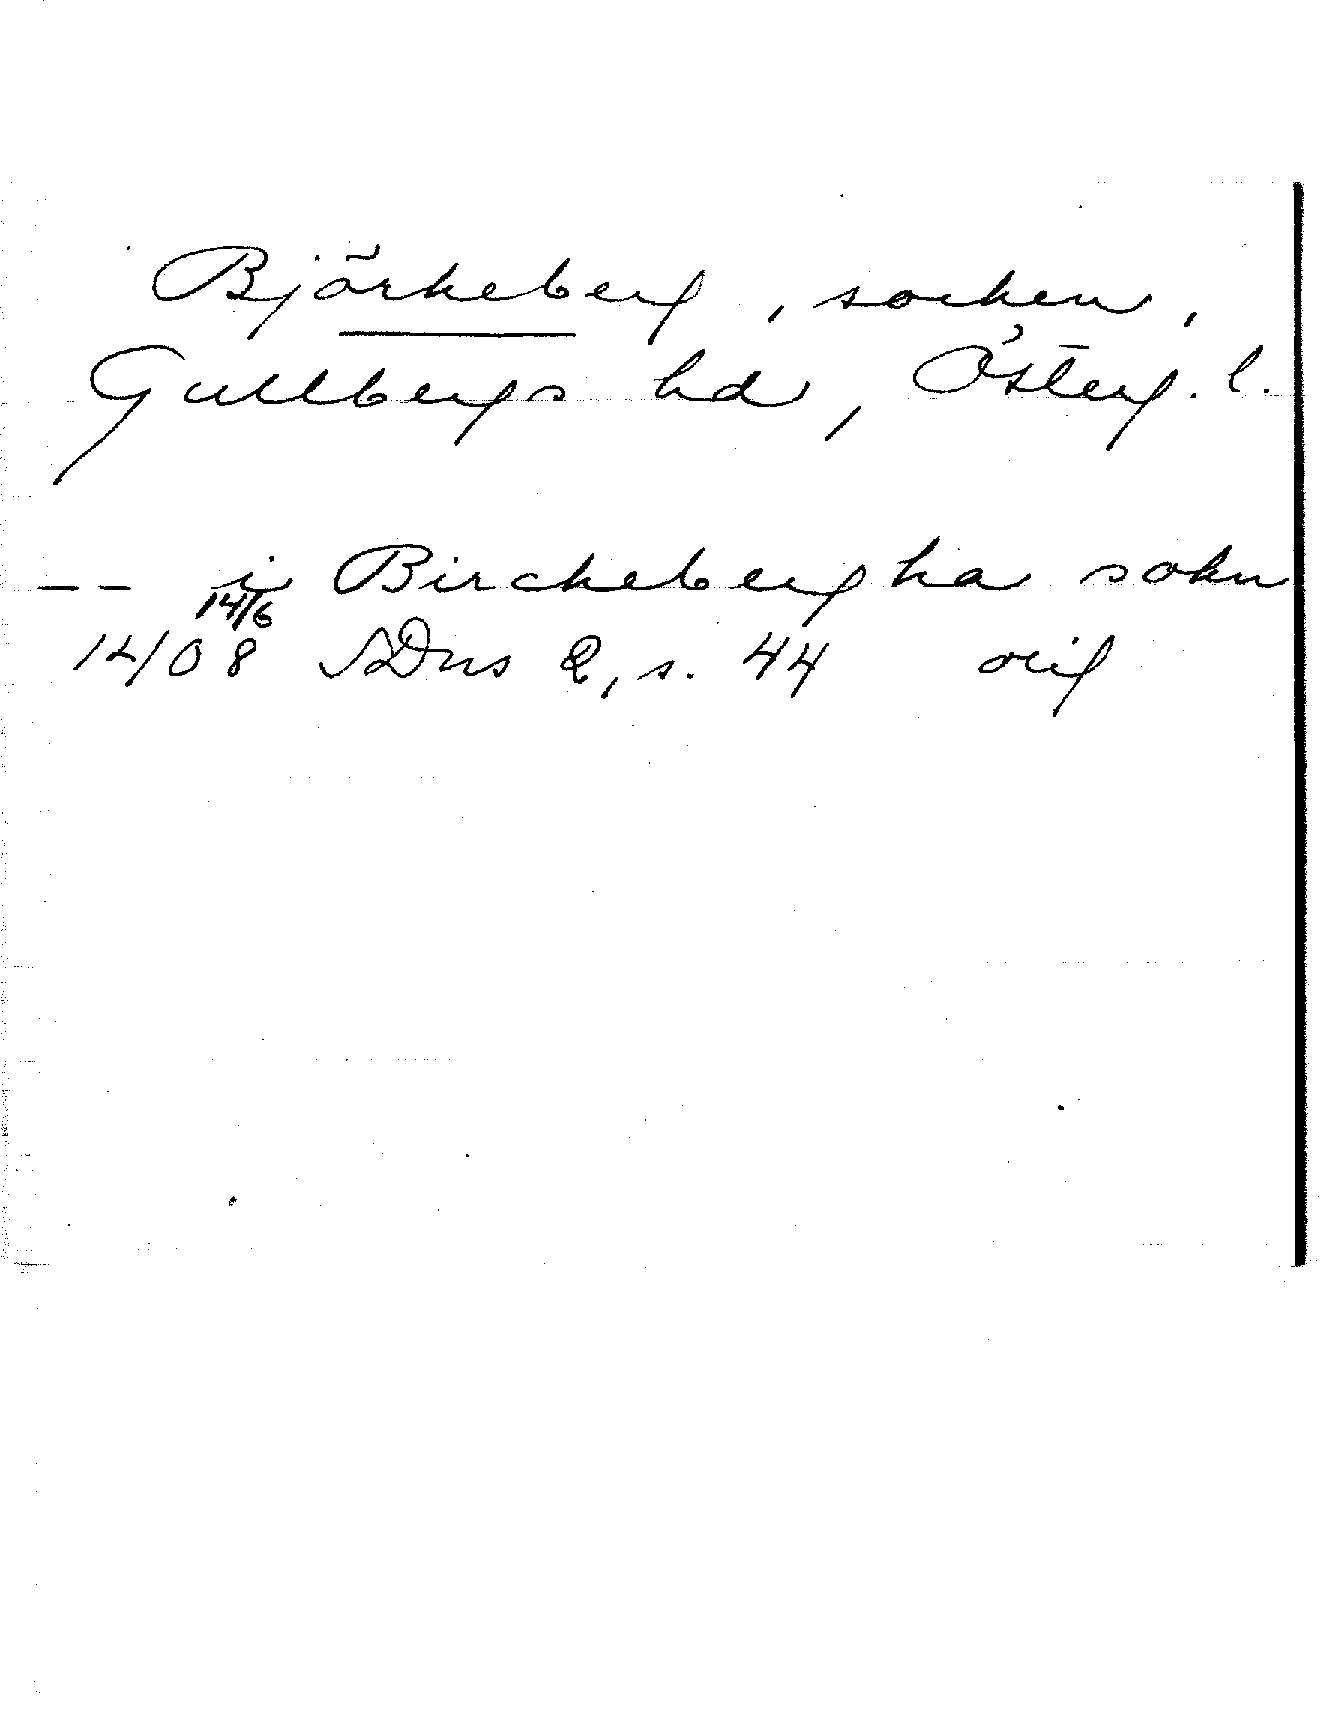 Björkeberg, socken,
Gullbergs hd, Österg. l.
-- i Birckebergha sokn
14/6
1408 SDns 2, s. 44 orig